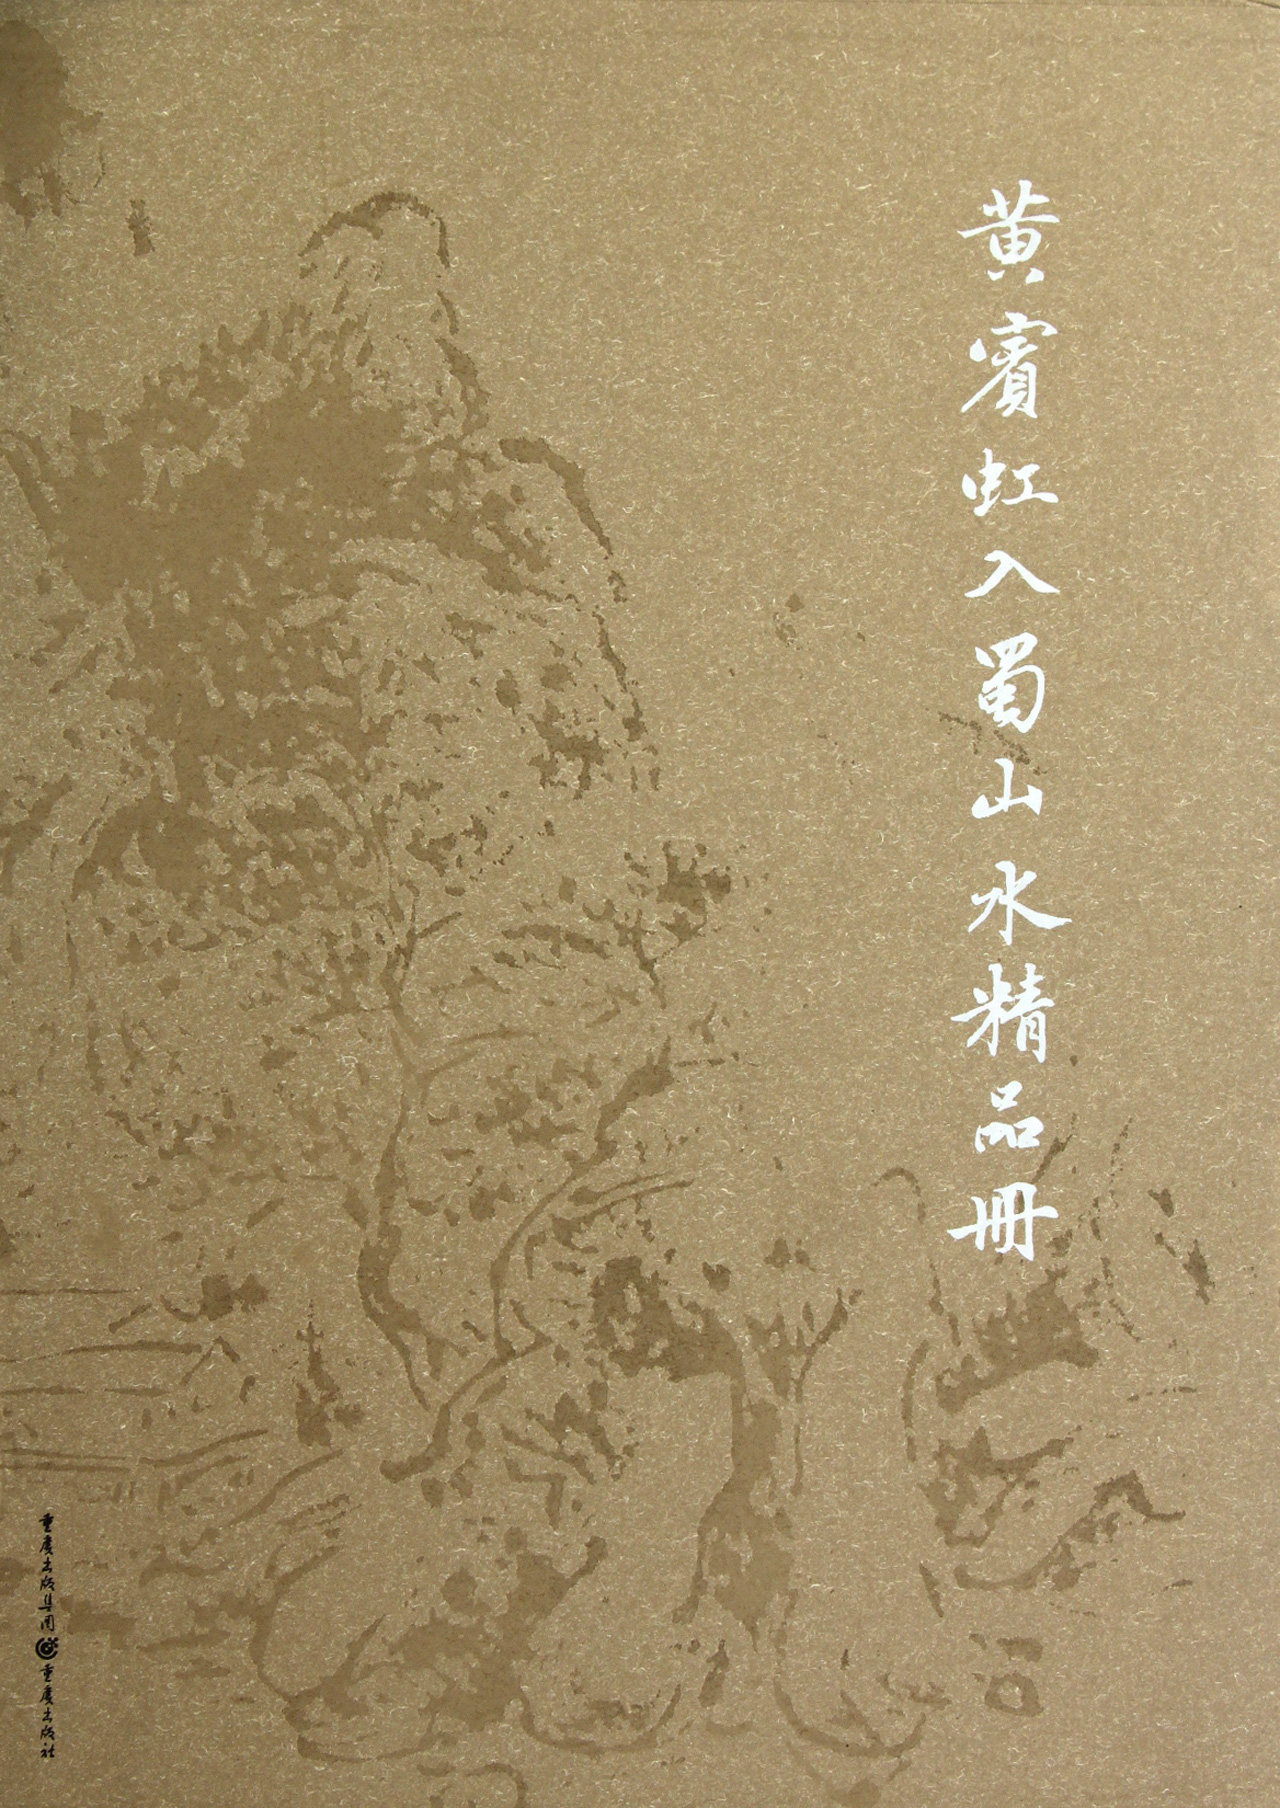 黄賓虹入蜀山水精品冊
重庆出版集团 重庆出版社